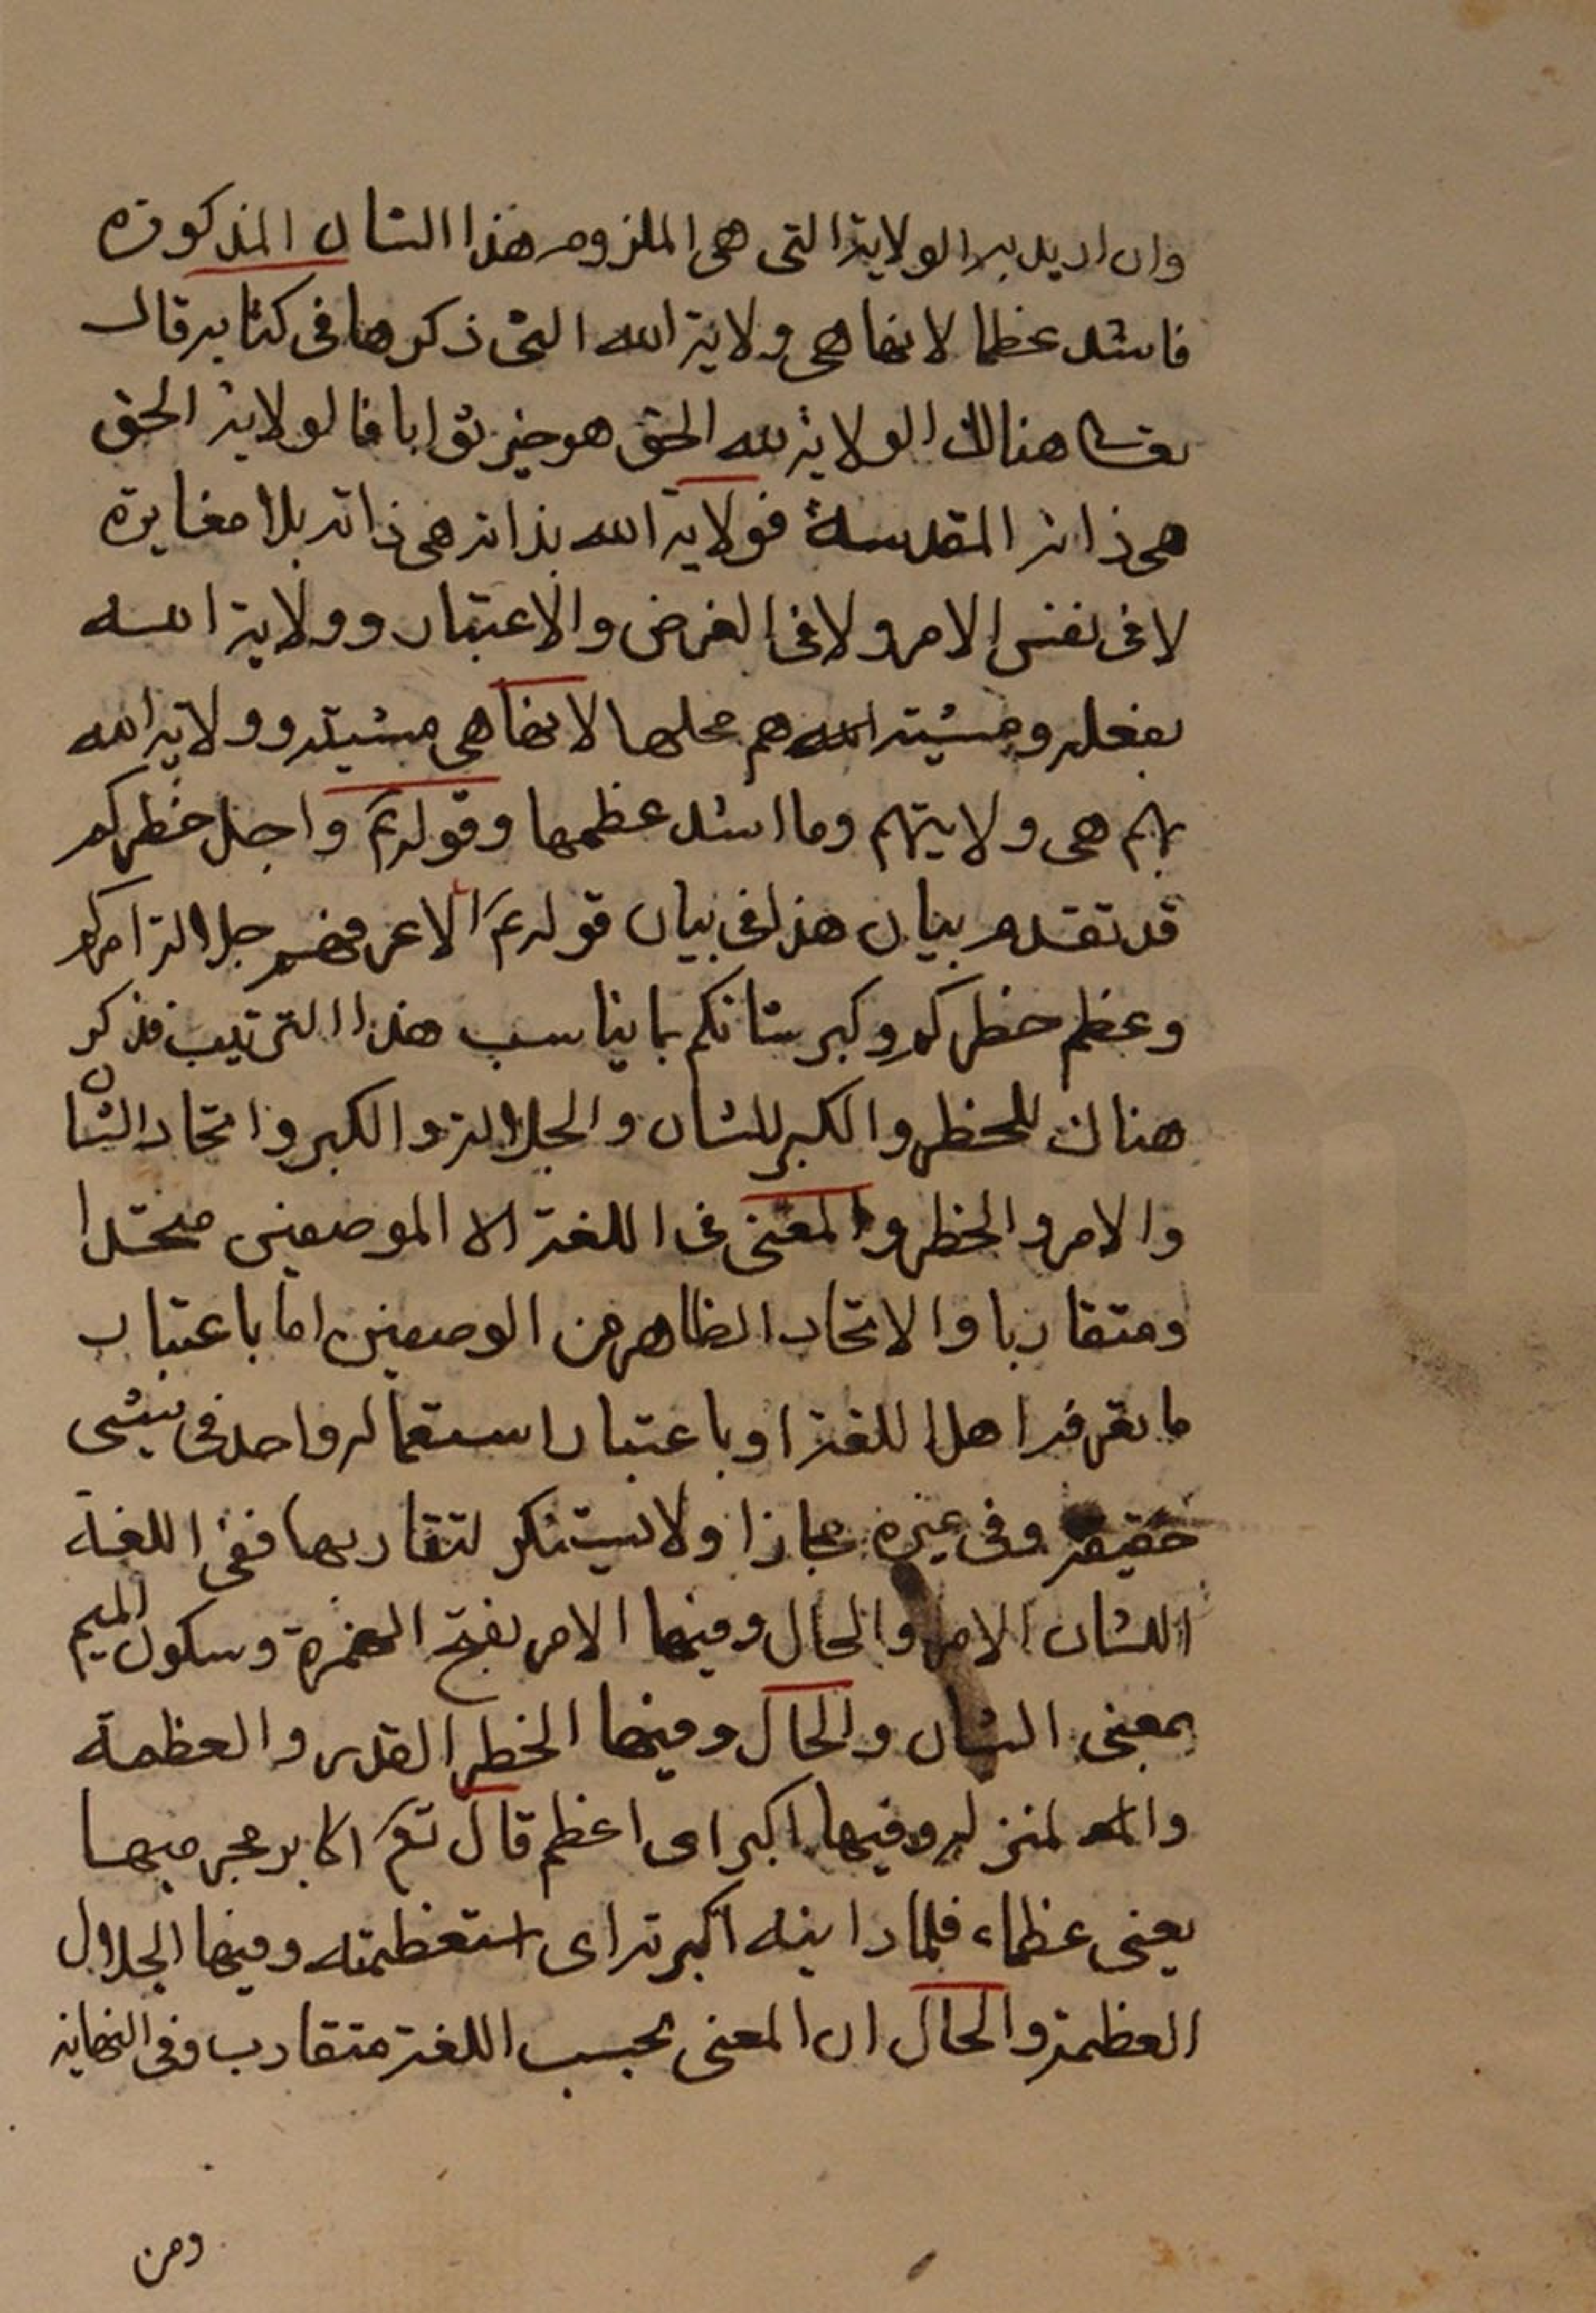 وان اريد به الولاية التى هى الملزوم هذا الشان المذكورة
فاشد عظما لانها هى ولاية الله التى ذكرها فى كتابه قال
تعالى هنالك الولاية لله الحق هو خير ثوابا فالولاية الحق
هى ذاته المقدسة فولاية الله بذاته هى ذاته بلا مغايرة
لا فى نفس الامر ولا فى الفرض والاعتبار وولاية الله
بفعله ومشيته الله هم محلها لانها هى مشيته وولاية الله
بهم هى ولايتهم وما اشد عظمها وقوله ع واجل خطركم
قد تقدم بيان هذا فى بيان قوله ع الا عرفهم جلالة امركم
وعظم خطركم وكبر شانكم بما يناسب هذا الترتيب فذكر
هناك للخطر والكبر للشان والجلالة والكبر واتحاد الشان
والامر والخطر والمعنى فى اللغة الا الموصفين متحدا
ومتقاربا والاتحاد الظاهر من الوصفين اما باعتبار
ما يعرفه اهل اللغة او باعتبار استعماله واحد فى شىء
حقيقة وفى غيره مجازا ولا يستنكر لتقاربها ففى اللغة
الشان الامر والحال وفيها الامر بفتح الهمزة وسكون الميم
بمعنى الشان والحال وفيها الخطر القدر والعظمة
والمنزله وفيها اكبر اى اعظم قال تع اكابر مجرميها
يعنى عظماء فلما راينه اكبرنه اى استعظمنه وفيها الجلال
العظمة والحال ان المعنى بحسب اللغة متقارب وفى النهاية
ومن